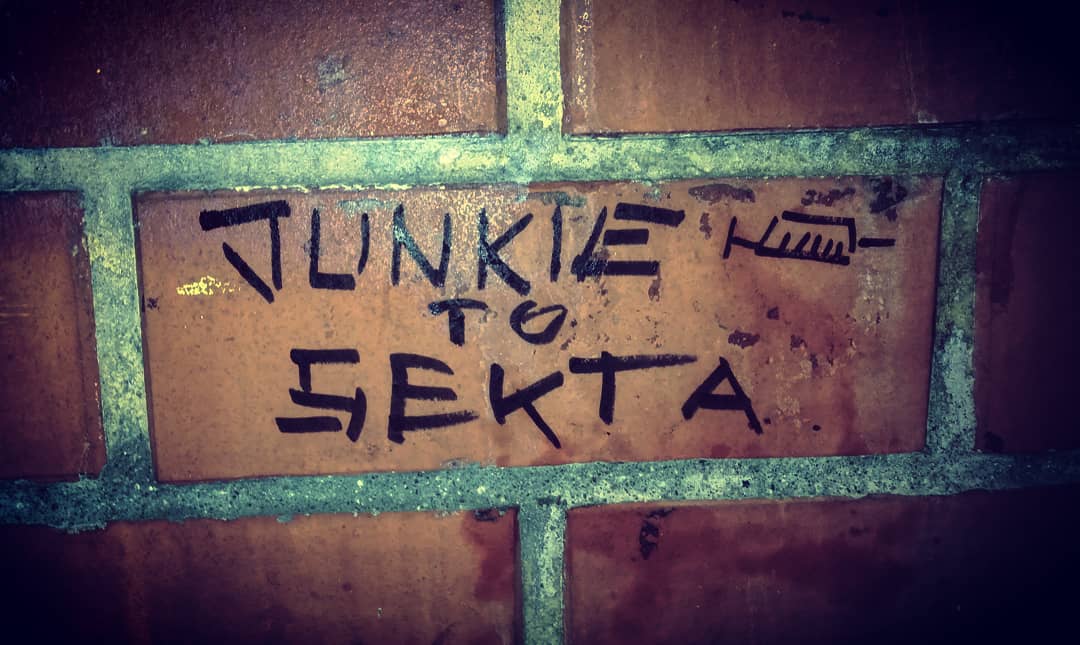 JUNKIE
TO
SEKTA